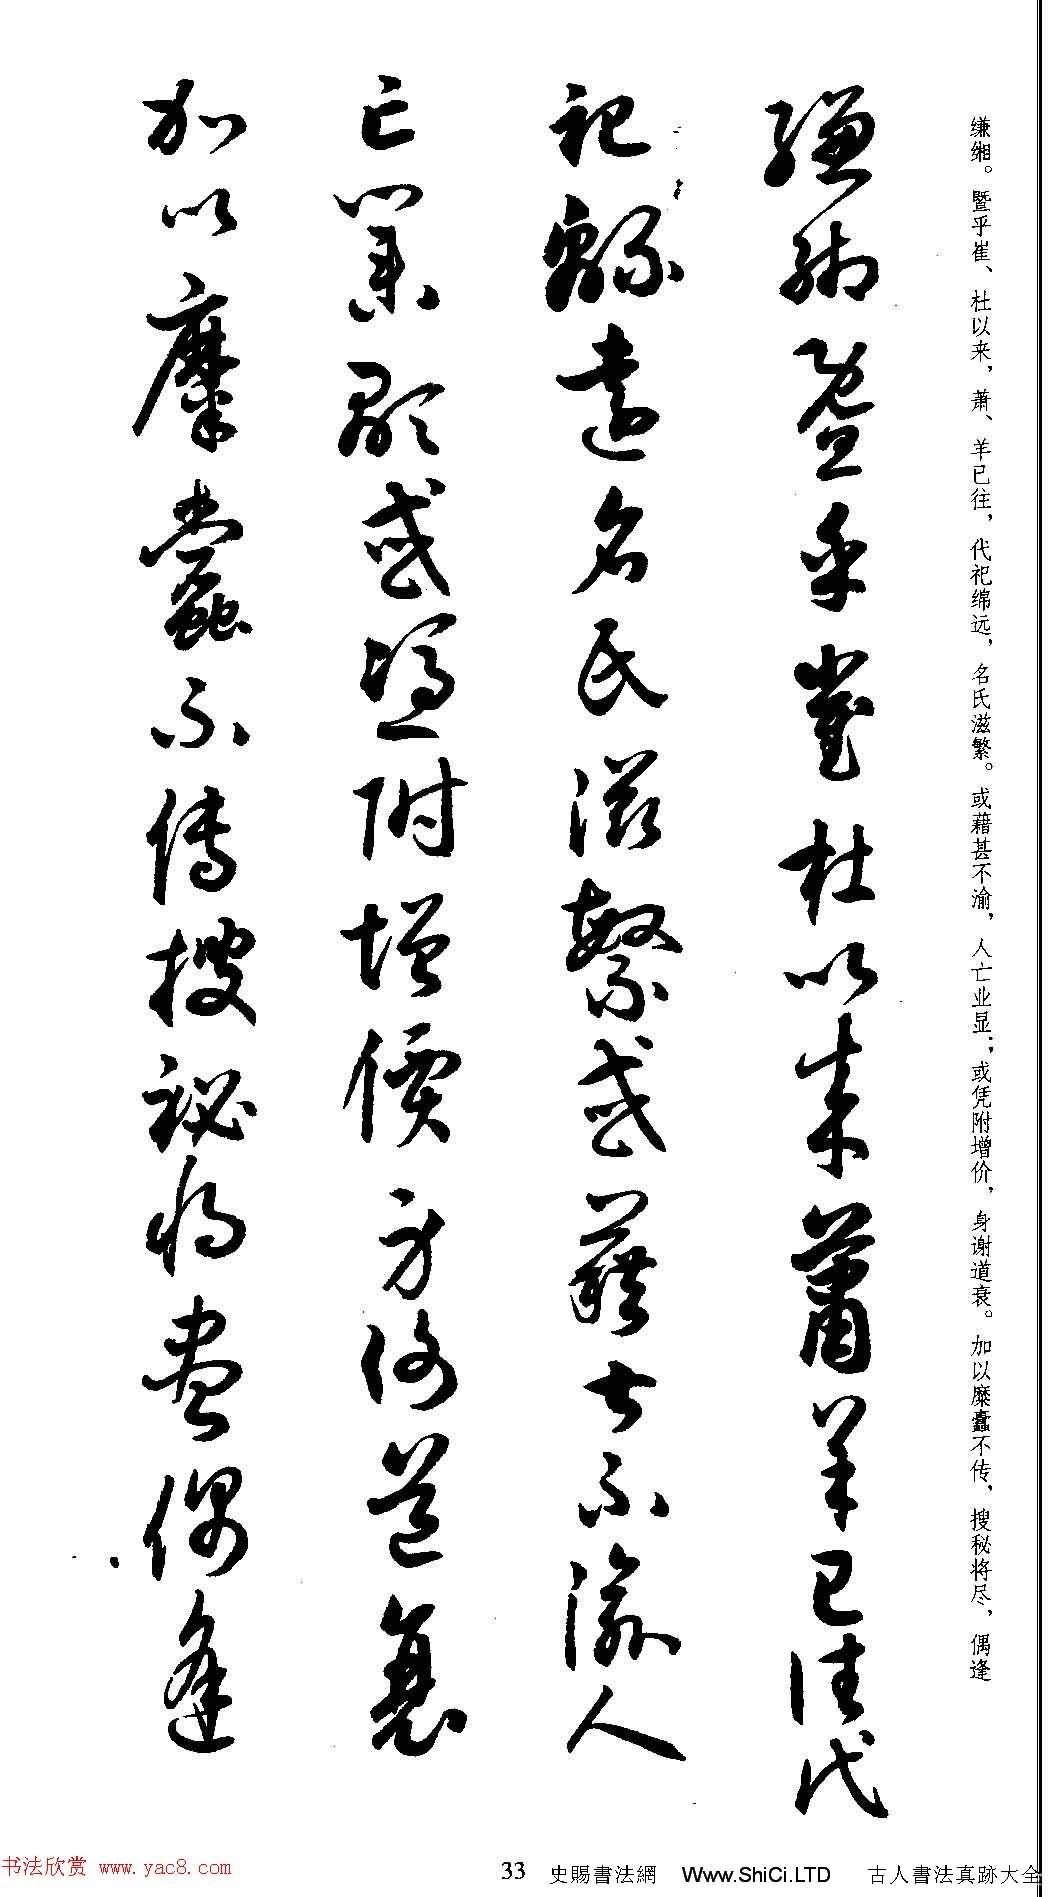 缣缃。暨乎崔、杜以来，萧、羊已往，代祀绵远，名氏滋繁。或藉甚不渝，人亡业显；或凭附增价，身谢道衰。加以糜蠹不传，搜秘将尽，偶逢
縑緗暨乎崔杜以来蕭羊已往代
祀緜遠名氏滋繁或藉甚不渝人
亡業顯或憑附增價身謝道衰
加以糜蠹不傳搜祕將盡偶逢
书法欣赏 www.yac8.com
33
史賜書法網 Www.ShiCi.LTD 古人書法真跡大全